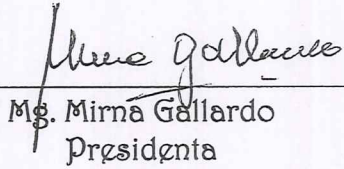 Mirna Gallardo
Mg. Mirna Gallardo
Presidenta